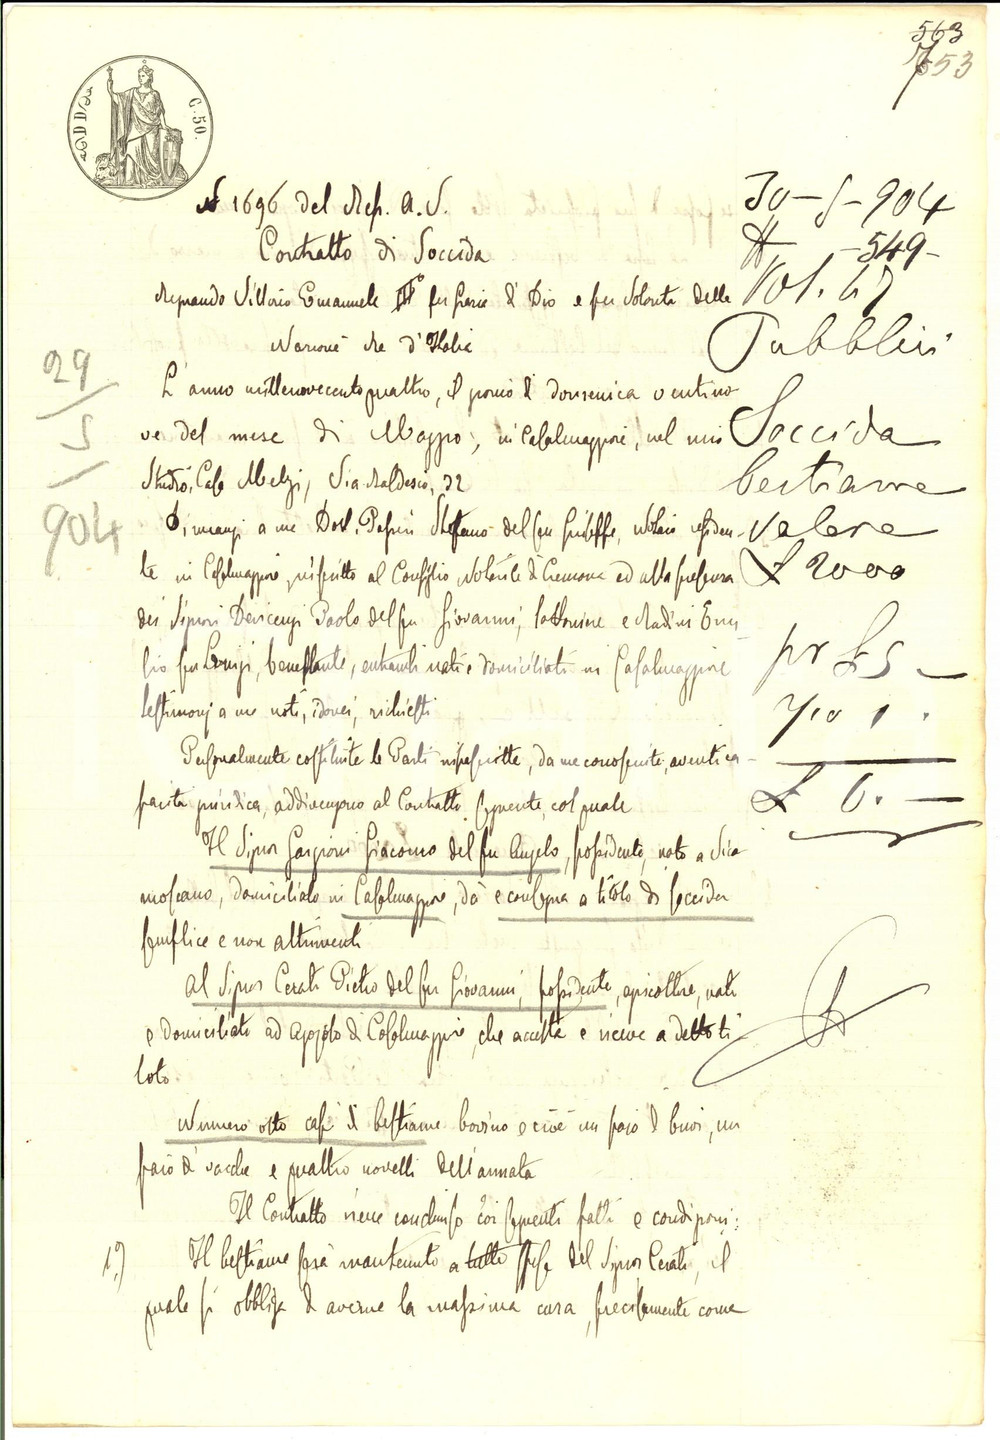 563
753
C. 50.
N 1696 del Rep. A. V.
Contratto di Soccida
Regnando Vittorio Emanuele III per grazia di Dio e per Volontà della
Nazione Re d'Italia
L'anno millenovecentoquattro, il giorno di domenica ventino
ve del mese di Maggio, in Casalmaggiore, nel mio
Studio, Casa Melzi, Via Baldesio, 32
Dinanzi a me Dott. Stefano del fu Giuseppe, Notaio residen-
te in Casalmaggiore, inscritto al Consiglio Notarile di Cremona ed alla presenza
dei Signori Devicenzi Paolo del fu Giovanni, fattorino e Radini Emi
lio fu Luigi, benestante, entrambi nati e domiciliati in Casalmaggiore
testimonj a me noti, idonei, richiesti
Personalmente costituite le Parti infrascritte, da me conosciute, aventi ca-
pacità giuridica, addivengono al Contratto seguente, col quale
Il Signor Gorgioni Giacomo del fu Angelo, possidente, nato a Vica
moscano, domiciliato in Casalmaggiore, dà e consegna a titolo di soccida
semplice e non altrimenti
al Signor Cerati Pietro del fu Giovanni, possidente, agricoltore, nato
e domiciliato ad Agojolo di Casalmaggiore, che accetta e riceve a detto ti
tolo
Numero otto capi di bestiame bovino e cioè un pajo di buoi, un
pajo di vacche e quattro novelli dell'annata
Il Contratto viene concluso coi seguenti patti e condizioni:
1°) Il bestiame sarà mantenuto a tutte spese del Signor Cerati, il
quale si obbliga di averne la massima cura, precisamente come
29
5
904
30-5-904
N -549-
Vol. 47
Pubblici
Soccida
bestiame
valore
£ 2000
pr £ 5 -
1.
£ 6. -